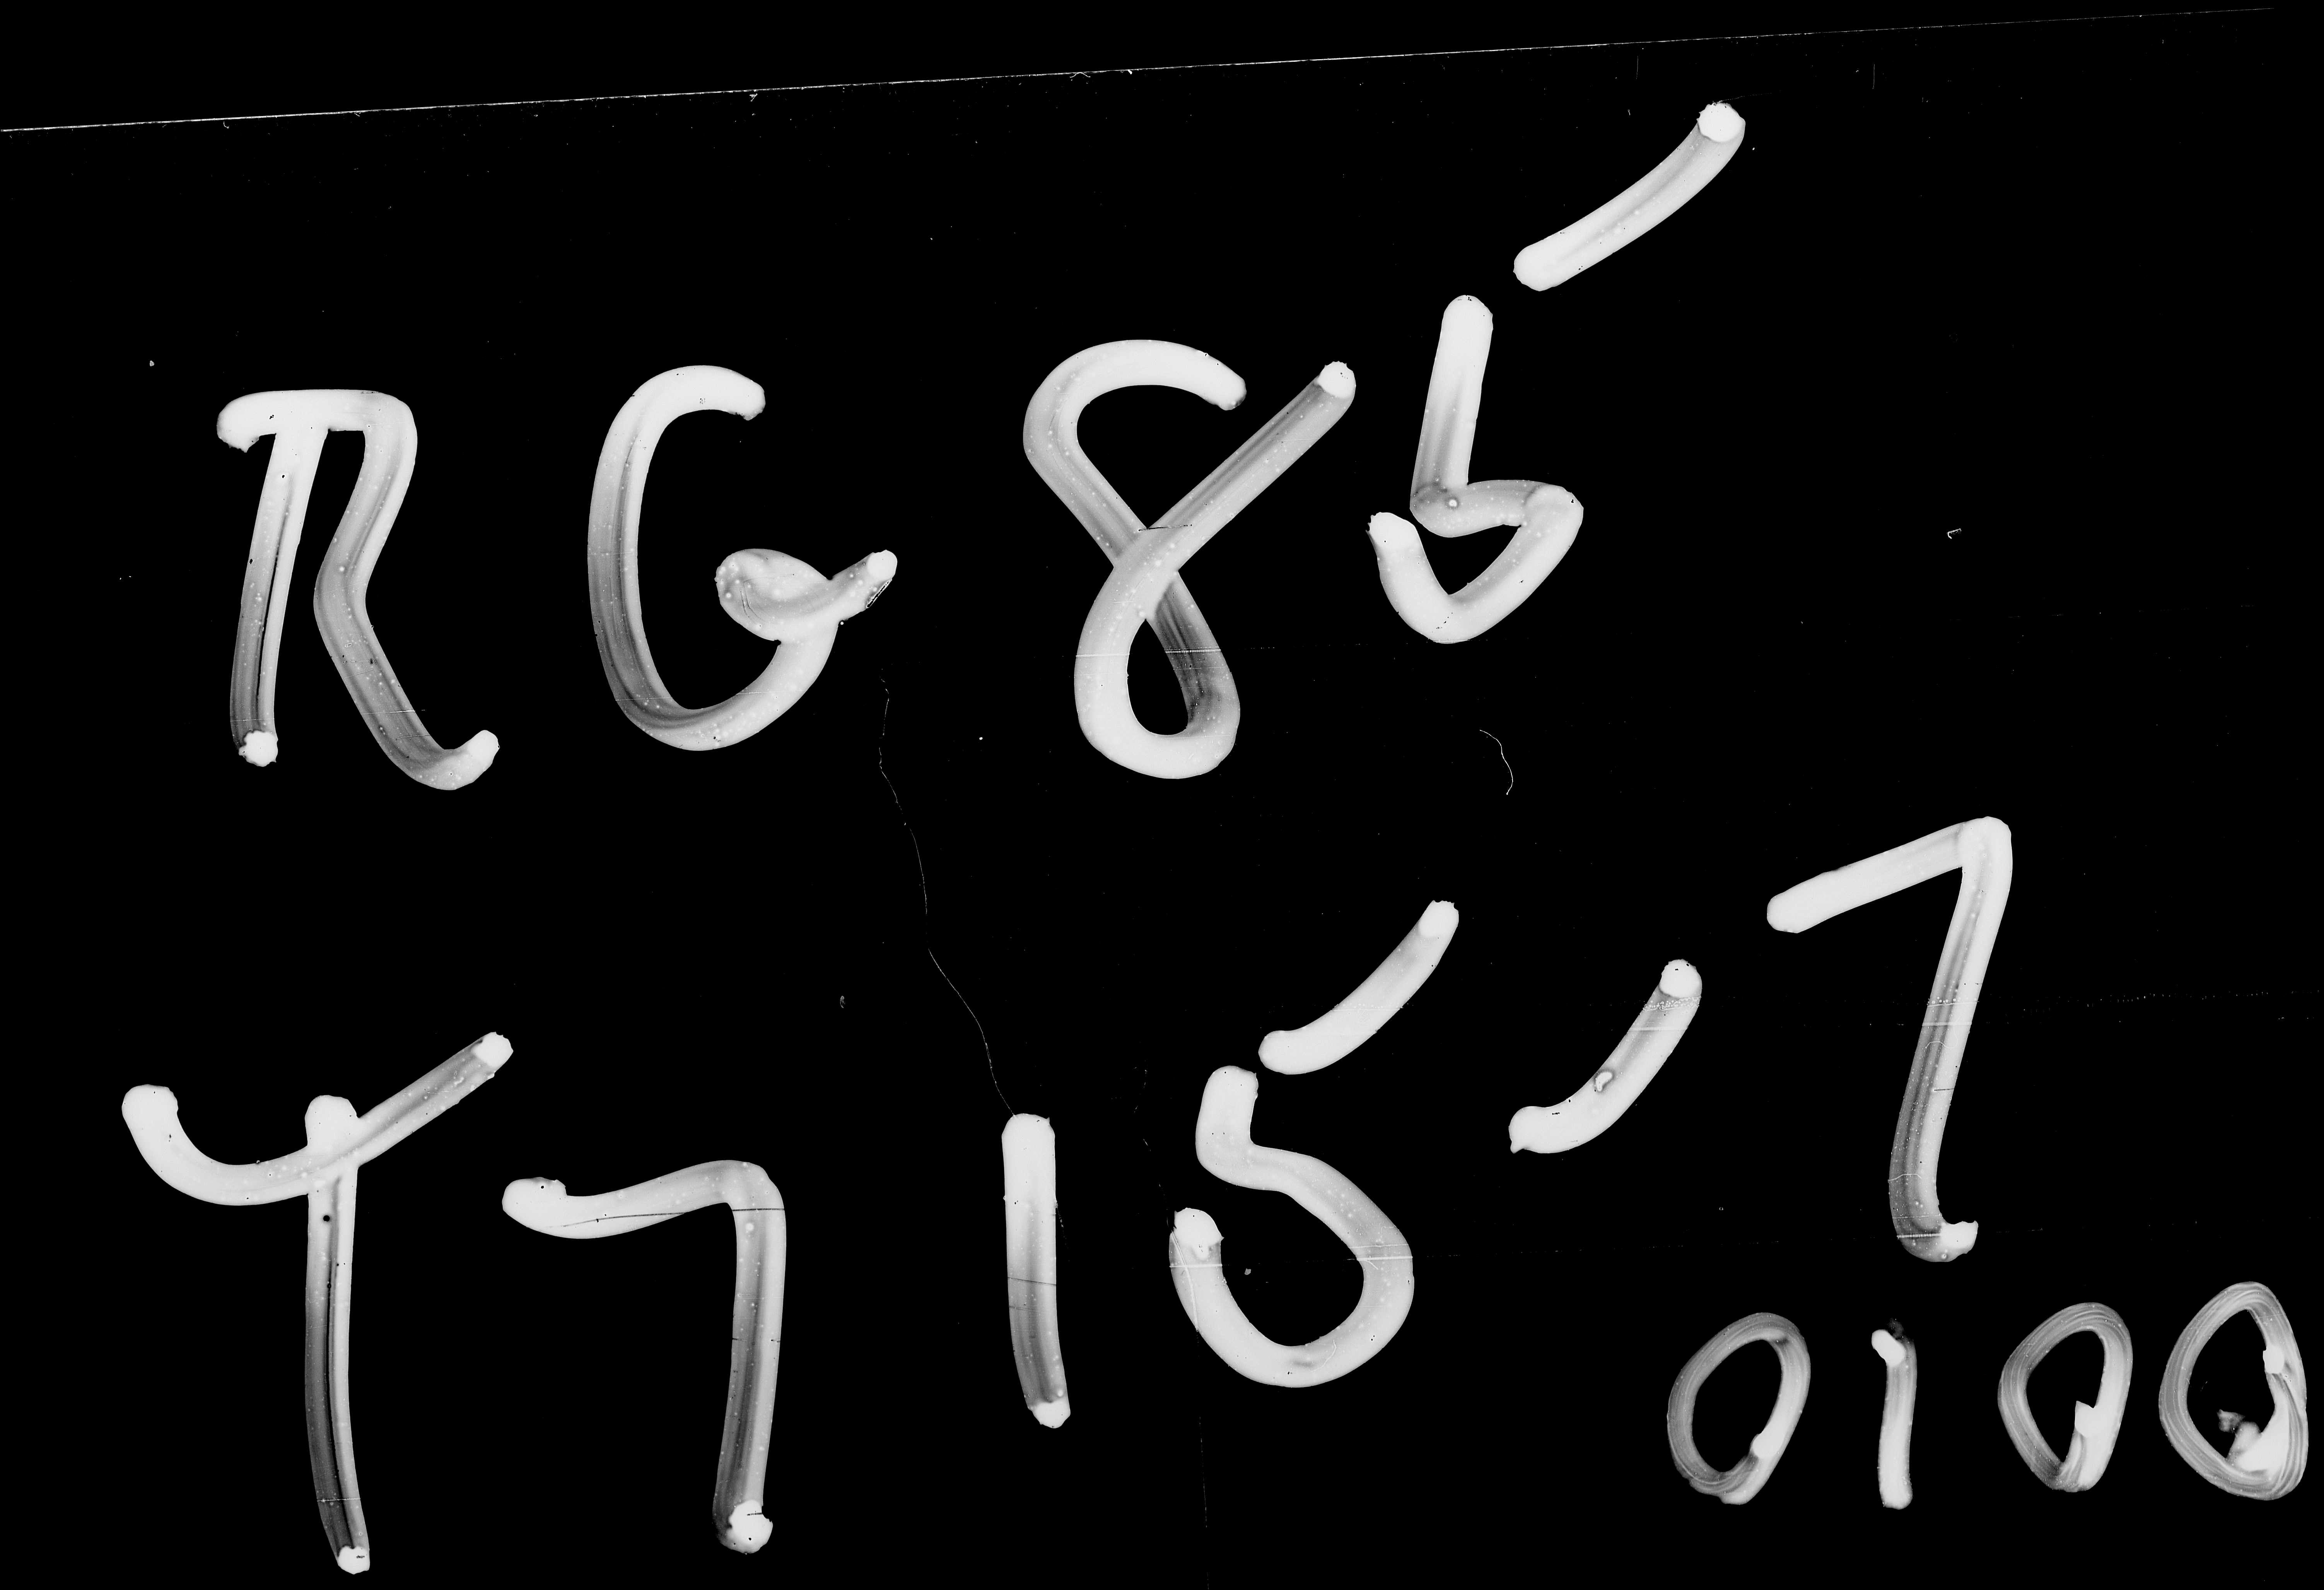 RG 85
T7 15-7
0100